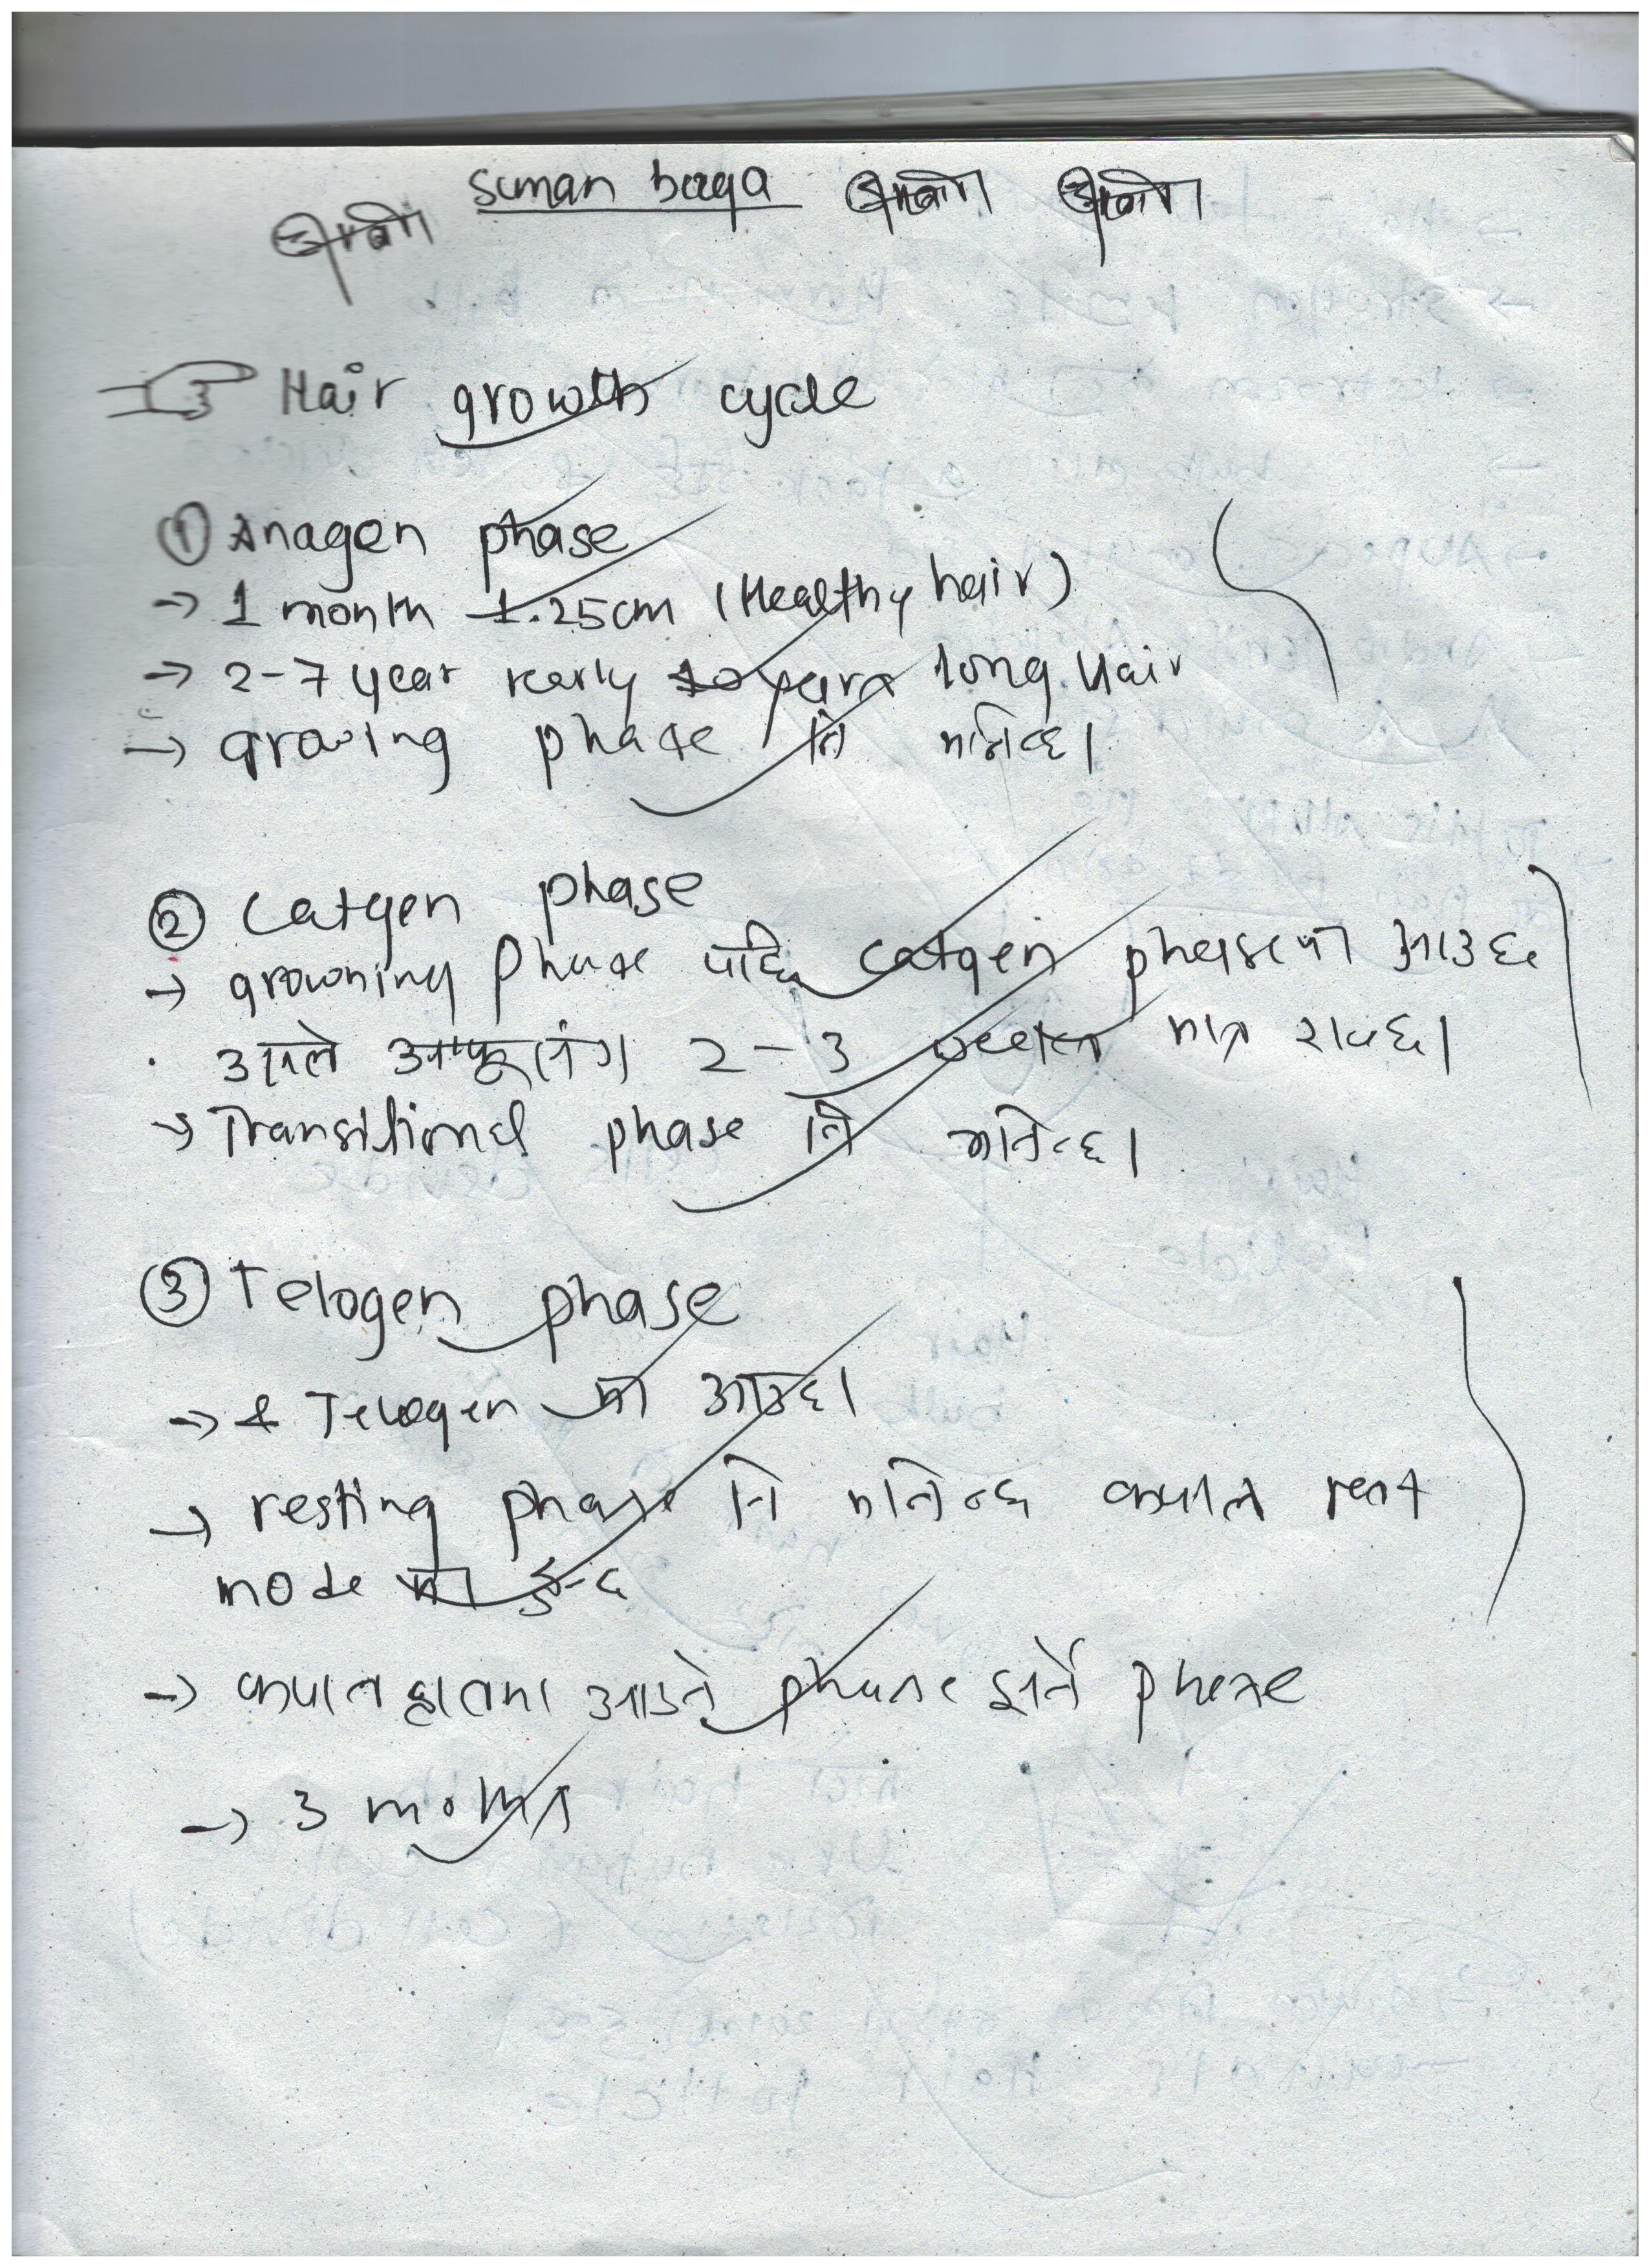 suman
Hair growth cycle
① Anagen phase
→ 1 month 1.25cm (Healthy hair)
→ 2-7 year long Hair
→ growing phase नि भनिन्छ।
② Catgen phase
→ growning phase पछि catgen phase मा आउछ
उसले आफूसंग 2-3 मात्र राख्छ।
→ Transitional phase नि भनिन्छ।
③ Telogen phase
→ Telogen मा आउछ।
→ resting phase नि भनिन्छ कपाल rest
mode मा हुन्छ
→ कपाल हातमा आउने phase झर्ने phase
→ 3 month